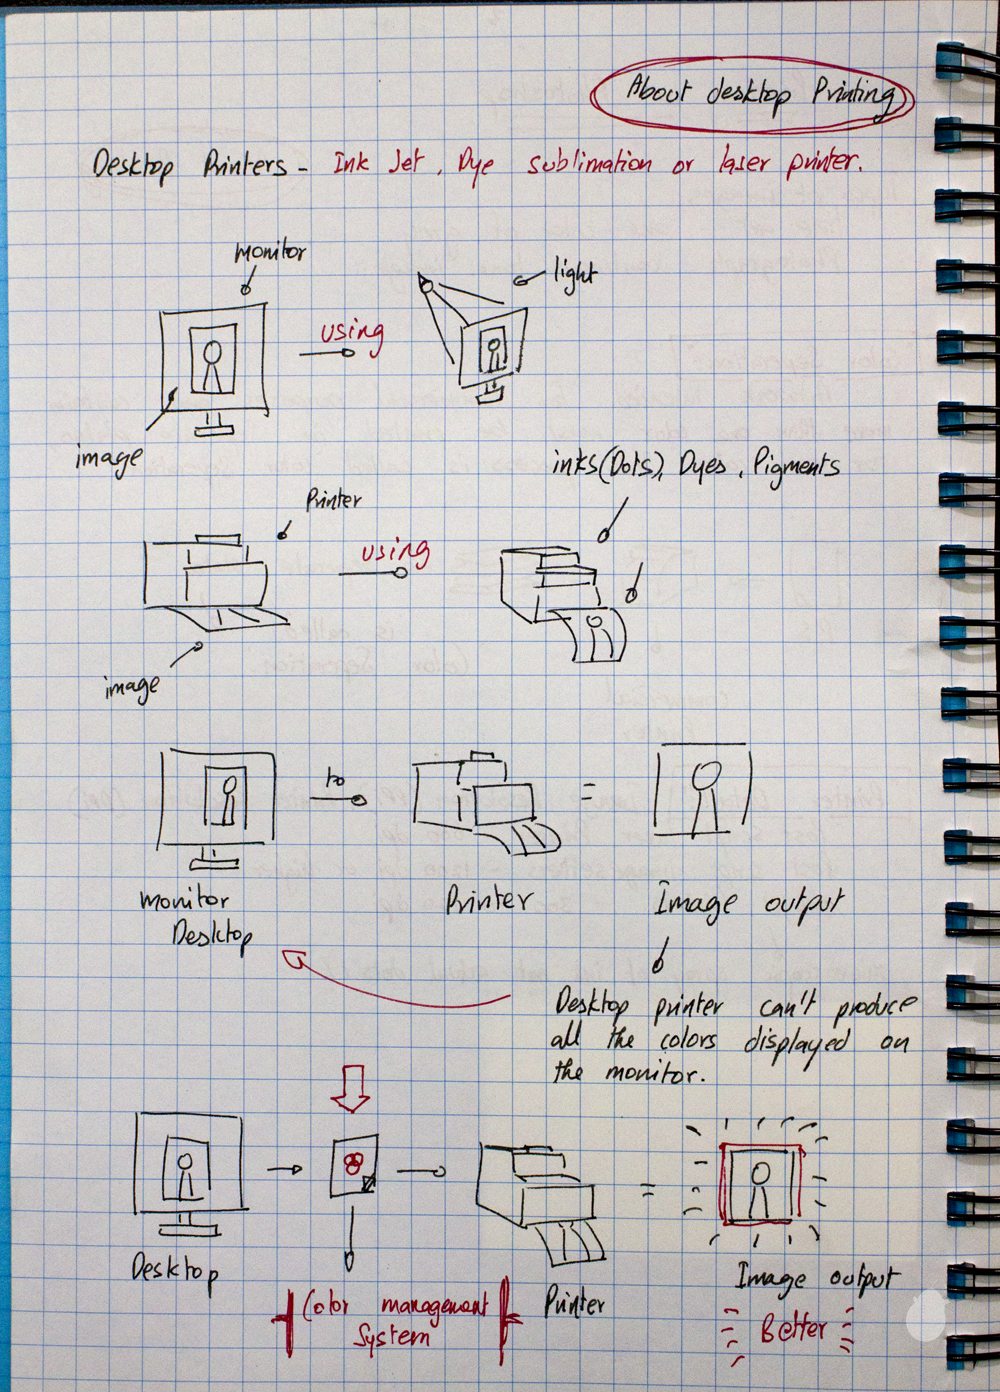 About desktop Printing
Desktop Printers - Ink Jet, Dye sublimation or laser printer.
monitor
using
light
image
inks(Dots), Dyes, Pigments
Printer
using
image
to
monitor
Desktop
Printer
=
Image output
Desktop printer can't produce
all the colors displayed on
the monitor.
=
Desktop
Color management
System
Printer
Image output
Better